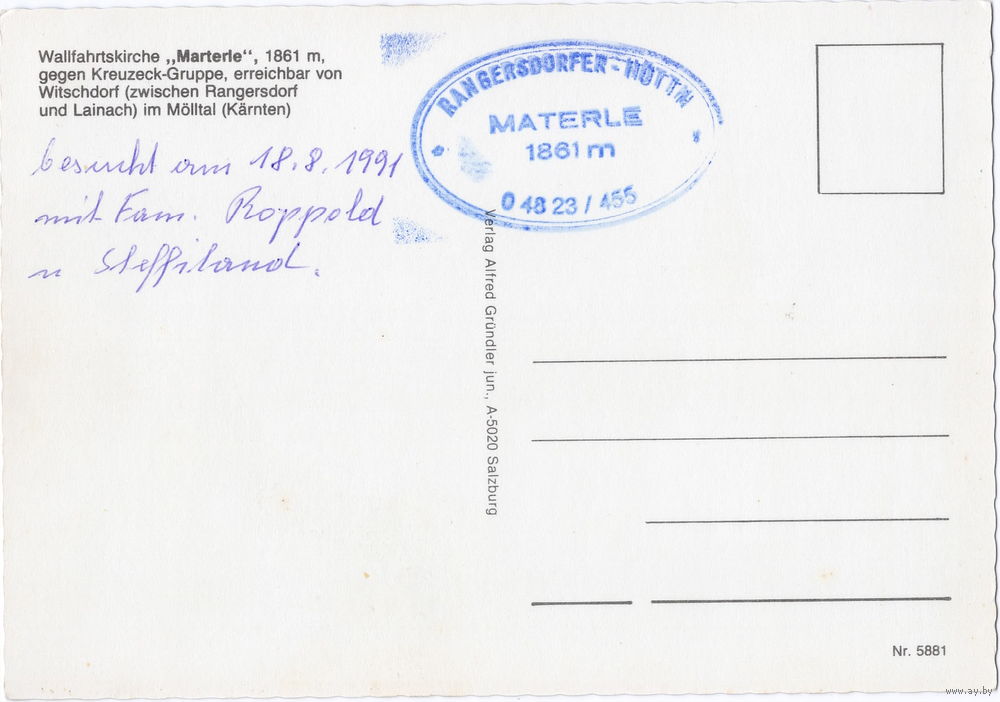 Wallfahrtskirche „Marterle“, 1861 m,
gegen Kreuzeck-Gruppe, erreichbar von
Witschdorf (zwischen Rangersdorf
und Lainach) im Mölltal (Kärnten)
besucht am 18.8.1991
mit Fam. Roppold
u Steffiland.
RANGERSDORFER-HÜTTN
MATERLE
1861 m
04823/455
Verlag Alfred Gründler jun., A-5020 Salzburg
Nr. 5881
www.ay.by